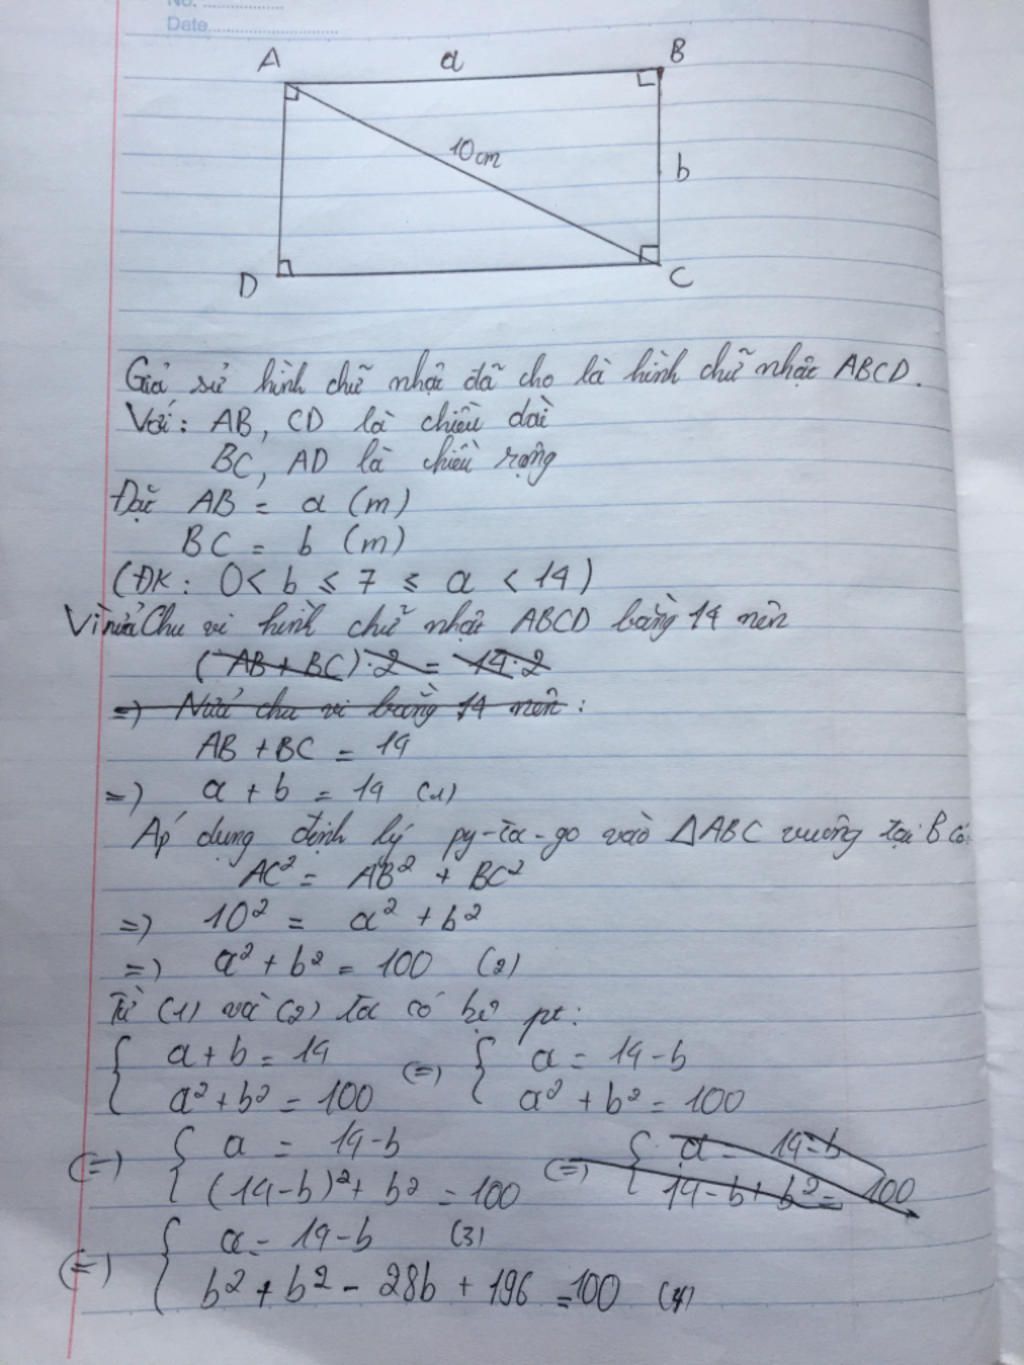 No. ..................
Date..............................
A a B
10cm
b
D C
Giả sử hình chữ nhật đã cho là hình chữ nhật ABCD.
Với: AB, CD là chiều dài
BC, AD là chiều rộng
Đặt AB = a (m)
BC = b (m)
(ĐK: 0 < b ≤ 7 ≤ a < 14)
Vì nửa Chu vi hình chữ nhật ABCD bằng 14 nên
(AB + BC).2 = 14.2
=) Nửa chu vi bằng 14 nên:
AB + BC = 14
=) a + b = 14 (1)
Áp dụng định lý py-ta-go vào ΔABC vuông tại B có:
AC² = AB² + BC²
=) 10² = a² + b²
=) a² + b² = 100 (2)
Từ (1) và (2) ta có hệ pt:
{ a + b = 14 (=) { a = 14 - b
a² + b² = 100 a² + b² = 100
(=) { a = 14 - b (=) { a = 14 - b
(14 - b)² + b² = 100 14 - b + b² = 100
(=) { a = 14 - b (3)
b² + b² - 28b + 196 = 100 (4)